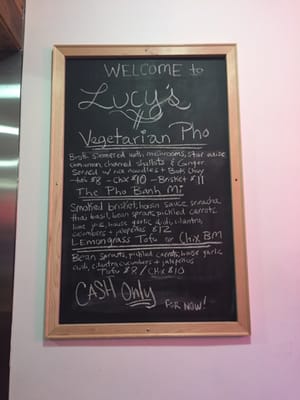 WELCOME to
Lucy's
Vegetarian Pho
Broth simmered with mushrooms, star anise
cinnamon, charred shallots & Ginger
Served w/ rice noodles + Bok Choy
Tofu $8 - Chix $10 - Brisket $11
The Pho Banh Mi
Smoked brisket, hoisin sauce, sriracha
thai basil, bean sprouts, pickled carrots
lime jus, house garlic aioli, cilantro,
cucumbers + jalapeños $12
Lemongrass Tofu or Chix BM
Bean Sprouts, pickled carrots, house garlic
aioli, cilantro, cucumbers + jalapeños
Tofu $8 / Chix $10
CASH Only
FOR NOW!